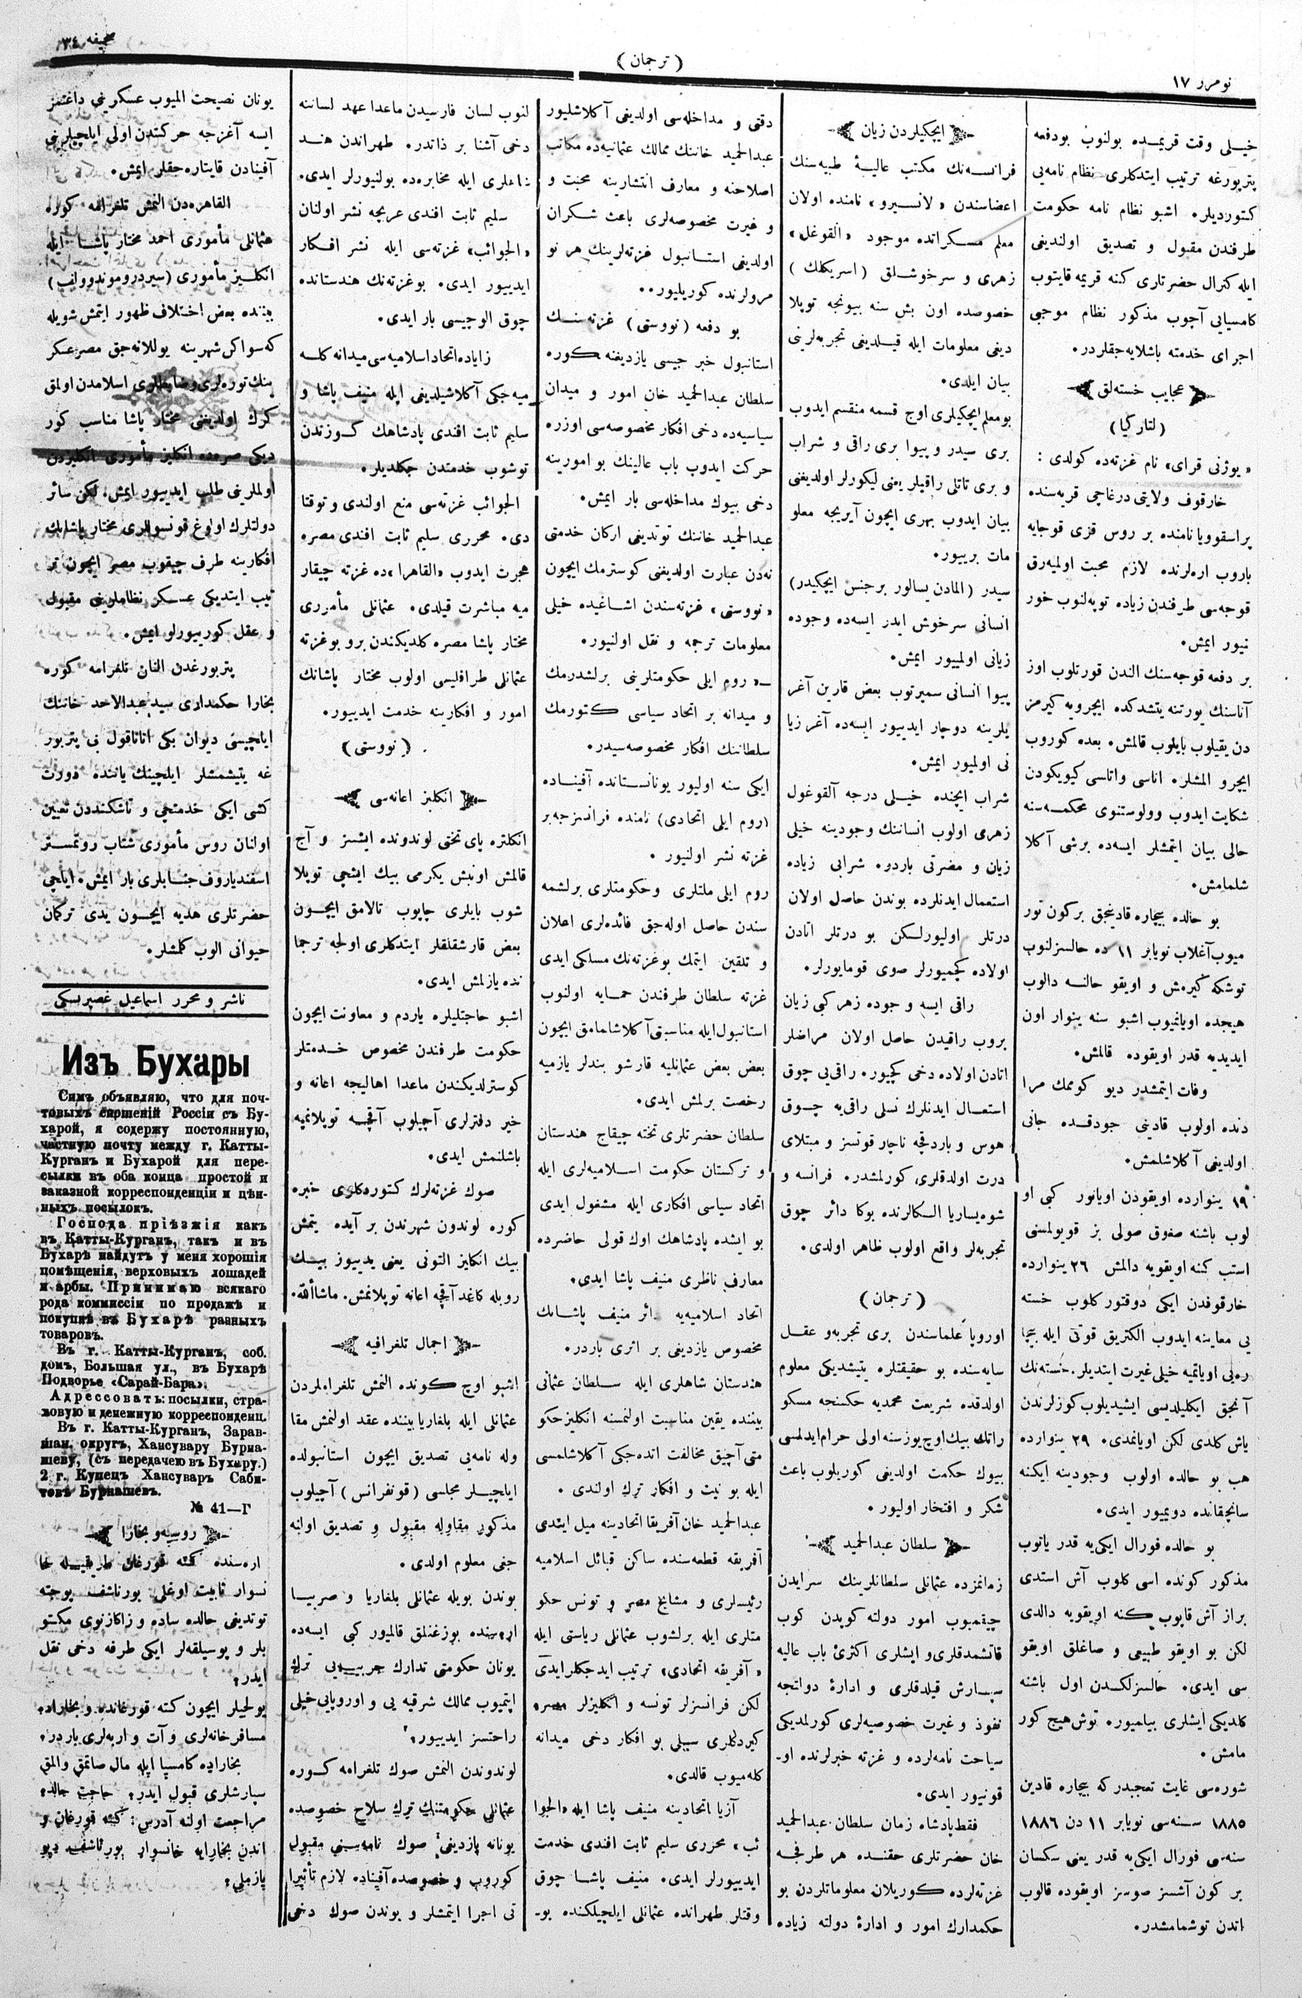 نومرر ١٧
(ترجمان)
صحیفه ٣٤
خیلی وقت قریمده بولنوب بودفعه
پتربورغه ترتیب ایتدکلری نظام نامه‌یی
کتوردیلر. اشبو نظام نامه حکومت
طرفندن مقبول و تصدیق اولندیغی
ایله کنرال حضرتلری کنه قریمه قایتوب
کامسیایی آچوب مذکور نظام موجبی
اجرای خدمته باشلایه‌جقلردر.
عجایب خسته‌لق
(لتارکیا)
«یوژنی قرای» نام غزته‌ده کولدی :
خارقوف ولایتی درغاچی قریه‌سنده
پراسقوویا نامنده بر روس قزی قوجایه
باروب اره‌لرنده لازم محبت اولمیه‌رق
قوجه‌سی طرفندن زیاده توپه‌لنوب خور
نیور ایمش.
بر دفعه قوجه‌سنك الندن قورتلوب اوز
آناسنك یورتنه یتشدکده ایچرویه کیرمز
دن یقیلوب بایلوب قالمش. بعده کوروب
ایچرو المشلر. اناسی واتاسی کیویکودن
شکایت ایدوب وولوستنوی محکمه‌سنه
حالی بیان ایتمشلر ایسه‌ده برشی آکلا
شلمامش.
بو حالده بیچاره قادینجق برکون تور
میوب آغلاب نویابر ١١ ده حالسزلنوب
توشکه کیرمش و اویقو حالنه دالوب
هیچده اویانمیوب اشبو سنه ینوار اون
ایدیدیه قدر اویقوده قالمش.
وفات ایتمشدر دیو کوممك مرا
دنده اولوب قادینی جودقده جانی
اولدیغی آکلاشلمش.
١٩ ینوارده اویقوذن اویانور کبی او
لوب باشنه صغوق صولی بز قویولمسنی
استب کنه اویقویه دالمش ٢٦ ینوارده
خارقوفدن ایکی دوقتور کلوب خسته
یی معاینه ایدوب الکتریق قوتی ایله بیچا
ره‌یی اویاتمیه خیلی غیرت ایتدیلر. خسته‌نك
آنجق ایکلیدیسی ایشیدیلوب کوزلرندن
یاش کلدی لکن اویانمدی. ٢٩ ینوارده
هب بو حالده اولوب وجودینه ایکنه
سانچقانده دویمیور ایدی.
بو حالده فورال ایکی‌یه قدر یاتوب
مذکور کونده اسی کلوب آش استدی
براز آش قابوب کنه اویقویه دالدی
لکن بو اویقو طبیعی و صاغلق اویقو
سی ایدی. حالسزلکدن اول باشنه
کلدیکی ایشلری بیلمیور. توش هیچ کور
مامش.
شوره‌سی غایت تعجبدر که بیچاره قادین
١٨٨٥ سنه‌سی نویابر ١١ دن ١٨٨٦
سنه‌سی فورال ایکی‌یه قدر یعنی سکسان
بر کون آشسز صوسز اویقوده قالوب
اتدن توشمامشدر.
ایچکیلردن زیان
فرانسه‌نك مکتب عالیهٔ طبیه‌سنك
اعضاسندن «لانسیرو» نامنده اولان
معلم مسکراتده موجود «القوغل»
زهری و سرخوشلق (اسریکلك)
خصوصده اون بش سنه بیونجه توپلا
دیغی معلومات ایله قیلدیغی تجربه‌لرینی
بیان ایلدی.
بومعلم ایچکیلری اوج قسمه منقسم ایدوب
بری سیدر و پیوا بری راقی و شراب
و بری تاتلی راقیلر یعنی لیکورلر اولدیغی
بیان ایدوب بهری ایچون آیریجه معلو
مات بریبور.
سیدر (المادن یسالور برجنس ایچکیدر)
انسانی سرخوش ایدر ایسه‌ده وجوده
زیانی اولمیور ایمش.
پیوا انسانی سمیرتوب بعض قارین آغر
یلرینه دوچار ایدییور ایسه‌ده آغر زیا
نی اولمیور ایمش.
شراب ایچنده خیلی درجه آلقوغول
زهرمی اولوب انساننك وجودینه خیلی
زیان و مضرتی باردر. شرابی زیاده
استعمال ایدنلرده بوندن حاصل اولان
درتلر اولیورلسکن بو درتلر اتادن
اولاده کچمیورلر صوی قومایورلر.
راقی ایسه و جوده زهر کبی زیان
بروب راقیدن حاصل اولان مراضلر
اتادن اولاده دخی کچیور. راقی‌یی چوق
استعمال ایدنلرك نسلی راقی‌یه چوق
هوس و باردقچه ناچار قوتسز و مبتلای
درت اولدقلری کورلمشدر. فرانسه و
شوه‌یساریا الکالرنده بوکا دائر چوق
تجربه‌لر واقع اولوب ظاهر اولدی.
(ترجمان)
اوروپا علماسندن بری تجربه‌و عقل
سایه‌سنده بو حقیقتلره یتیشدیکی معلوم
اولدقده شریعت محمدیه حکمنجه مسکو
راتك بیك اوچ یوزسنه اولی حرام ایدلمسی
بیوك حکمت اولدیغی کوریلوب باعث
شکر و افتخار اولیور.
سلطان عبدالحمید
زمانمزده عثمانلی سلطانلرینك سرایدن
چیقمیوب امور دولته کویدن کوب
قاتشمدقلری‌و ایشلری اکثری باب عالیه
سپارش قیلدقلری و ادارهٔ دولتجه
نفوذ و غیرت خصوصیه‌لری کورلمدیکی
سیاحت نامه‌لرده و غزته خبرلرنده او
قونیور ایدی.
فقط پادشاه زمان سلطان عبدالحمید
خان حضرتلری حقنده هر طرفچه
غزته‌لرده کوریلان معلوماتلردن بو
حکمدارك امور و ادارهٔ دولته زیاده
دقتی و مداخله‌سی اولدیغی آکلاشلیور
عبدالحمید خاننك ممالك عثمانیه‌ده مکاتب
اصلاحنه و معارف انتشارینه محبت و
و غیرت مخصوصه‌لری باعث شکران
اولدیغی استانبول غزته‌لرینك هر نو
مرولرنده کوریلیور..
بو دفعه (نووستی) غزته‌سنك
استانبول خبر جیسی یازدیغنه کوره
سلطان عبدالحمید خان امور و میدان
سیاسیه‌ده دخی افکار مخصوصه‌سی اوزره
حرکت ایدوب باب عالینك بو امورینه
دخی بیوك مداخله‌سی بار ایمش.
عبدالحمید خاننك توتدیغی ارکان خدمتی
نه‌دن عبارت اولدیغنی کوسترمك ایچون
«نووستی» غزته‌سندن اشاغیده خیلی
معلومات ترجمه و نقل اولنیور.
—«روم ایلی حکومتلرینی برلشدرمك
و میدانه بر اتحاد سیاسی کتورمك
سلطاننك افکار مخصوصه‌سیدر.
ایکی سنه اولیور یونانستانده آفیناده
(روم ایلی اتحادی) نامنده فرانسزجه بر
غزته نشر اولنیور .
روم ایلی ملتلری وحکومتلری برلشمه
سندن حاصل اوله‌جق فائده‌لری اعلان
و تلقین ایتمك بوغزته‌نك مسلکی ایدی
غزته سلطان طرفندن حمایه اولنوب
استانبول ایله مناسبتی آکلاشلماماق ایچون
بعض بعض عثمانلیه قارشو بندلر یازمیه
رخصت برلمش ایدی.
سلطان حضرتلری تخته جیقاج هندستان
و ترکستان حکومت اسلامیه‌لری ایله
اتحاد سیاسی افکاری ایله مشغول ایدی
بو ایشده پادشاهك اوك قولی حاضرده
معارف ناظری منیف پاشا ایدی.
اتحاد اسلامیه‌یه دائر منیف پاشانك
مخصوص یازدیغی بر اثری باردر.
هندستان شاهلری ایله سلطان عثمانی
بیننده یقین مناسبت اولنمسنه انکلیز حکو
متی آچیق مخالفت ائده‌جکی آکلاشلمسی
ایله بو نیت و افکار ترك اولندی .
عبدالحمید خان آفریقا اتحادینه میل ایتدی
آفریقه قطعه‌سنده ساکن قبائل اسلامیه
رئیسلری و مشایخ مصر و تونس حکو
متلری ایله برلشوب عثمانلی ریاستی ایله
«آفریقه اتحادی» ترتیب ایدجکلر ایدی
لکن فرانسزلر تونسه و انکلیزلر مصره
کیردکلری سببلی بو افکار دخی میدانه
کله‌میوب قالدی.
آزیا اتحادینه منیف پاشا ایله «الجوا
ئب» محرری سلیم ثابت افندی خدمت
ایدییورلر ایدی. منیف پاشا چوق
وقتلر طهرانده عثمانلی ایلچیلکنده بو‌
لنوب لسان فارسیدن ماعدا عهد لساننه
دخی آشنا بر ذاتدر. طهراندن هند
شاهلری ایله مخابره‌ده بولنیورلر ایدی.
سلیم ثابت افندی عربجه نشر اولنان
«الجوائب» غزته‌سی ایله نشر افکار
ایدییور ایدی. بوغزته‌نك هندستانده
چوق الوجیسی بار ایدی.
زیاده اتحاد اسلامیه‌سی میدانه کلمه
میه‌جکی آکلاشیلدیغی ایله منیف پاشا و
سلیم ثابت افندی پادشاهك کوزندن
توشوب خدمتدن چکلدیلر.
الجوائب غزته‌سی منع اولندی و توقتا
دی. محرری سلیم ثابت افندی مصره
هجرت ایدوب «القاهرا»ده غزته چیقار
میه مباشرت قیلدی. عثمانلی مأمرری
مختار پاشا مصره کلدیکندن برو بوغزته
عثمانلی طرافلیسی اولوب مختار پاشانك
امور و افکارینه خدمت ایدییور.
(نووستی)
انکلیز اعانه‌سی
انکلتره پای تختی لوندونده ایشسز و آج
قالمش اونبش یکرمی بیك ایشچی توپلا
شوب بایلری چاپوب تالامق ایچون
بعض قارشقلقلر ایتدکلری اولجه ترجما
نده یازلمش ایدی.
اشبو حاجتلیلره یاردم و معاونت ایچون
حکومت طرفندن مخصوص خدمتلر
کوسترلدیکندن ماعدا اهالیجه اعانه و
خیر دفترلری آچیلوب آقچه توپلانمیه
باشلنمش ایدی.
صوك غزته‌لرك کتوردکلری خبره
کوره لوندون شهرندن بر آیده یتمش
بیك انکلیز التونی یعنی یدییوز بیك
روبله کاغد آقچه اعانه توپلانمش. ماشاالله.
اجمال تلغرافیه
اشبو اوچ کونده النمش تلغرافلردن
عثمانلی ایله بلغاریا بیننده عقد اولنمش مقا
وله نامه‌یی تصدیق ایچون استانبولده
ایلچیلر مجلسی (قونفرانس) آچیلوب
مذکور مقاوله مقبول و تصدیق اولنه
جغی معلوم اولدی.
بوندن بویله عثمانلی بلغاریا و صربیا
اره‌سنده بوزغنلق قالمیور کبی ایسه‌ده
یونان حکومتی تدارك حربیه‌یی ترك
ایتمیوب ممالك شرقیه یی و اوروپایی خیلی
راحتسز ایدییور.
لوندوندن النمش صوك تلغرامه کوره
عثمانلی حکومتنك ترك سلاح خصوصده
یونانه یازدیغی صوك نامه‌سنی مقبول
کوروب و خصوصده آفیناده لازم تأثیرا
تی اجرا ایتمشلر و بوندن صوك دخی
یونان نصیحت المیوب عسکرینی داغتمز
ایسه آغزجه حرکتدن اولی ایلچیلرینی
آفینادن قایتاره‌جقلر ایمش.
القاهره‌دن النمش تلغرافمه کوره
عثمانلی مأموری احمد مختار پاشا ایله
انکلیز مأموری (سیر دروموندوولف)
بیننده بعض اختلاف ظهور ایتمش شویله
که سواکن شهرینه یوللانه‌جق مصر عسکر
ینك توره‌لری و ضابطلری اسلامدن اولمق
کرك اولدیغی مختار پاشا مناسب کور
دیکی صرەده انکلیز مأموری انکلیزدن
اولملرینی طلب ایدییور ایمش. لکن سائر
دولتلرك اولوغ قونسولری مختار پاشانك
افکارینه طرف چیقوب مصر ایچون تر
تیب ایتدیکی عسکر نظاملرینی مقبول
و عقل کورمیورلر ایمش.
پتربورغدن النان تلغرامه کوره
بخارا حکمداری سید عبدالاحد خاننك
ایلچیسی دیوان بکی اناناقول نی پتربور
غه یتیشمشلر ایلچینك یاننده دورت
کشی ایکی خدمتچی و تاشکنددن تعیین
اولنان روس مأموری شتاب روتمستر
اسفندیاروف جنابلری بار ایمش. ایلچی
حضرتلری هدیه ایچون یدی ترکمان
حیوانی الوب کلمشلر.
ناشر و محرر اسماعیل غصپرنسکی
Изъ Бухары
Симъ объявляю, что для поч-
товыхъ сношеній Россіи съ Бу-
харой, я содержу постоянную,
частную почту между г. Катты-
Курганъ и Бухарой для пере-
сылки въ оба конца простой и
заказной корреспонденціи и цѣн-
ныхъ посылокъ.
Господа пріезжія какъ
въ Катты-Курганъ, такъ и въ
Бухарѣ найдутъ у меня хорошія
помѣщенія, верховыхъ лошадей
и арбы. Принимаю всякаго
рода коммиссіи по продажѣ и
покупкѣ въ Бухарѣ разныхъ
товаровъ.
Въ г. Катты-Курганъ, соб.
домъ, Большая ул., въ Бухарѣ
Подворье «Сарай-Бара».
Адрессовать: посылки, стра-
ховую и денежную корреспонденц.
Въ г. Катты-Курганъ, Зарав-
шан. округъ, Хансувару Бурна-
шеву, (съ передачею въ Бухару.)
2 г. Купецъ Хансуваръ Саби-
товъ Бурнашевъ.
№ 41—Г
روسیه‌و بخارا
اره‌سنده کته قورغان طریقیله خا
نسوار ثابیت اوغلی بورناشف پوچته
توتدیغی حالده ساده و زاکازنوی مکتو
بلر و پوسیلقه‌لر ایکی طرفه دخی نقل
ایدر.
یولجیلر ایچون کته قورغانده و بخاراده
مسافرخانه‌لری و آت و اربه‌لری باردر.
بخاراده کامسیا ایله مال صاتمق والمق
سپارشلری قبول ایدر. حاجت حالده
مراجعت اولنه آدرس: کته قورغان و
اندن بخارایه خانسوار بورناشف دیو
یازملی.